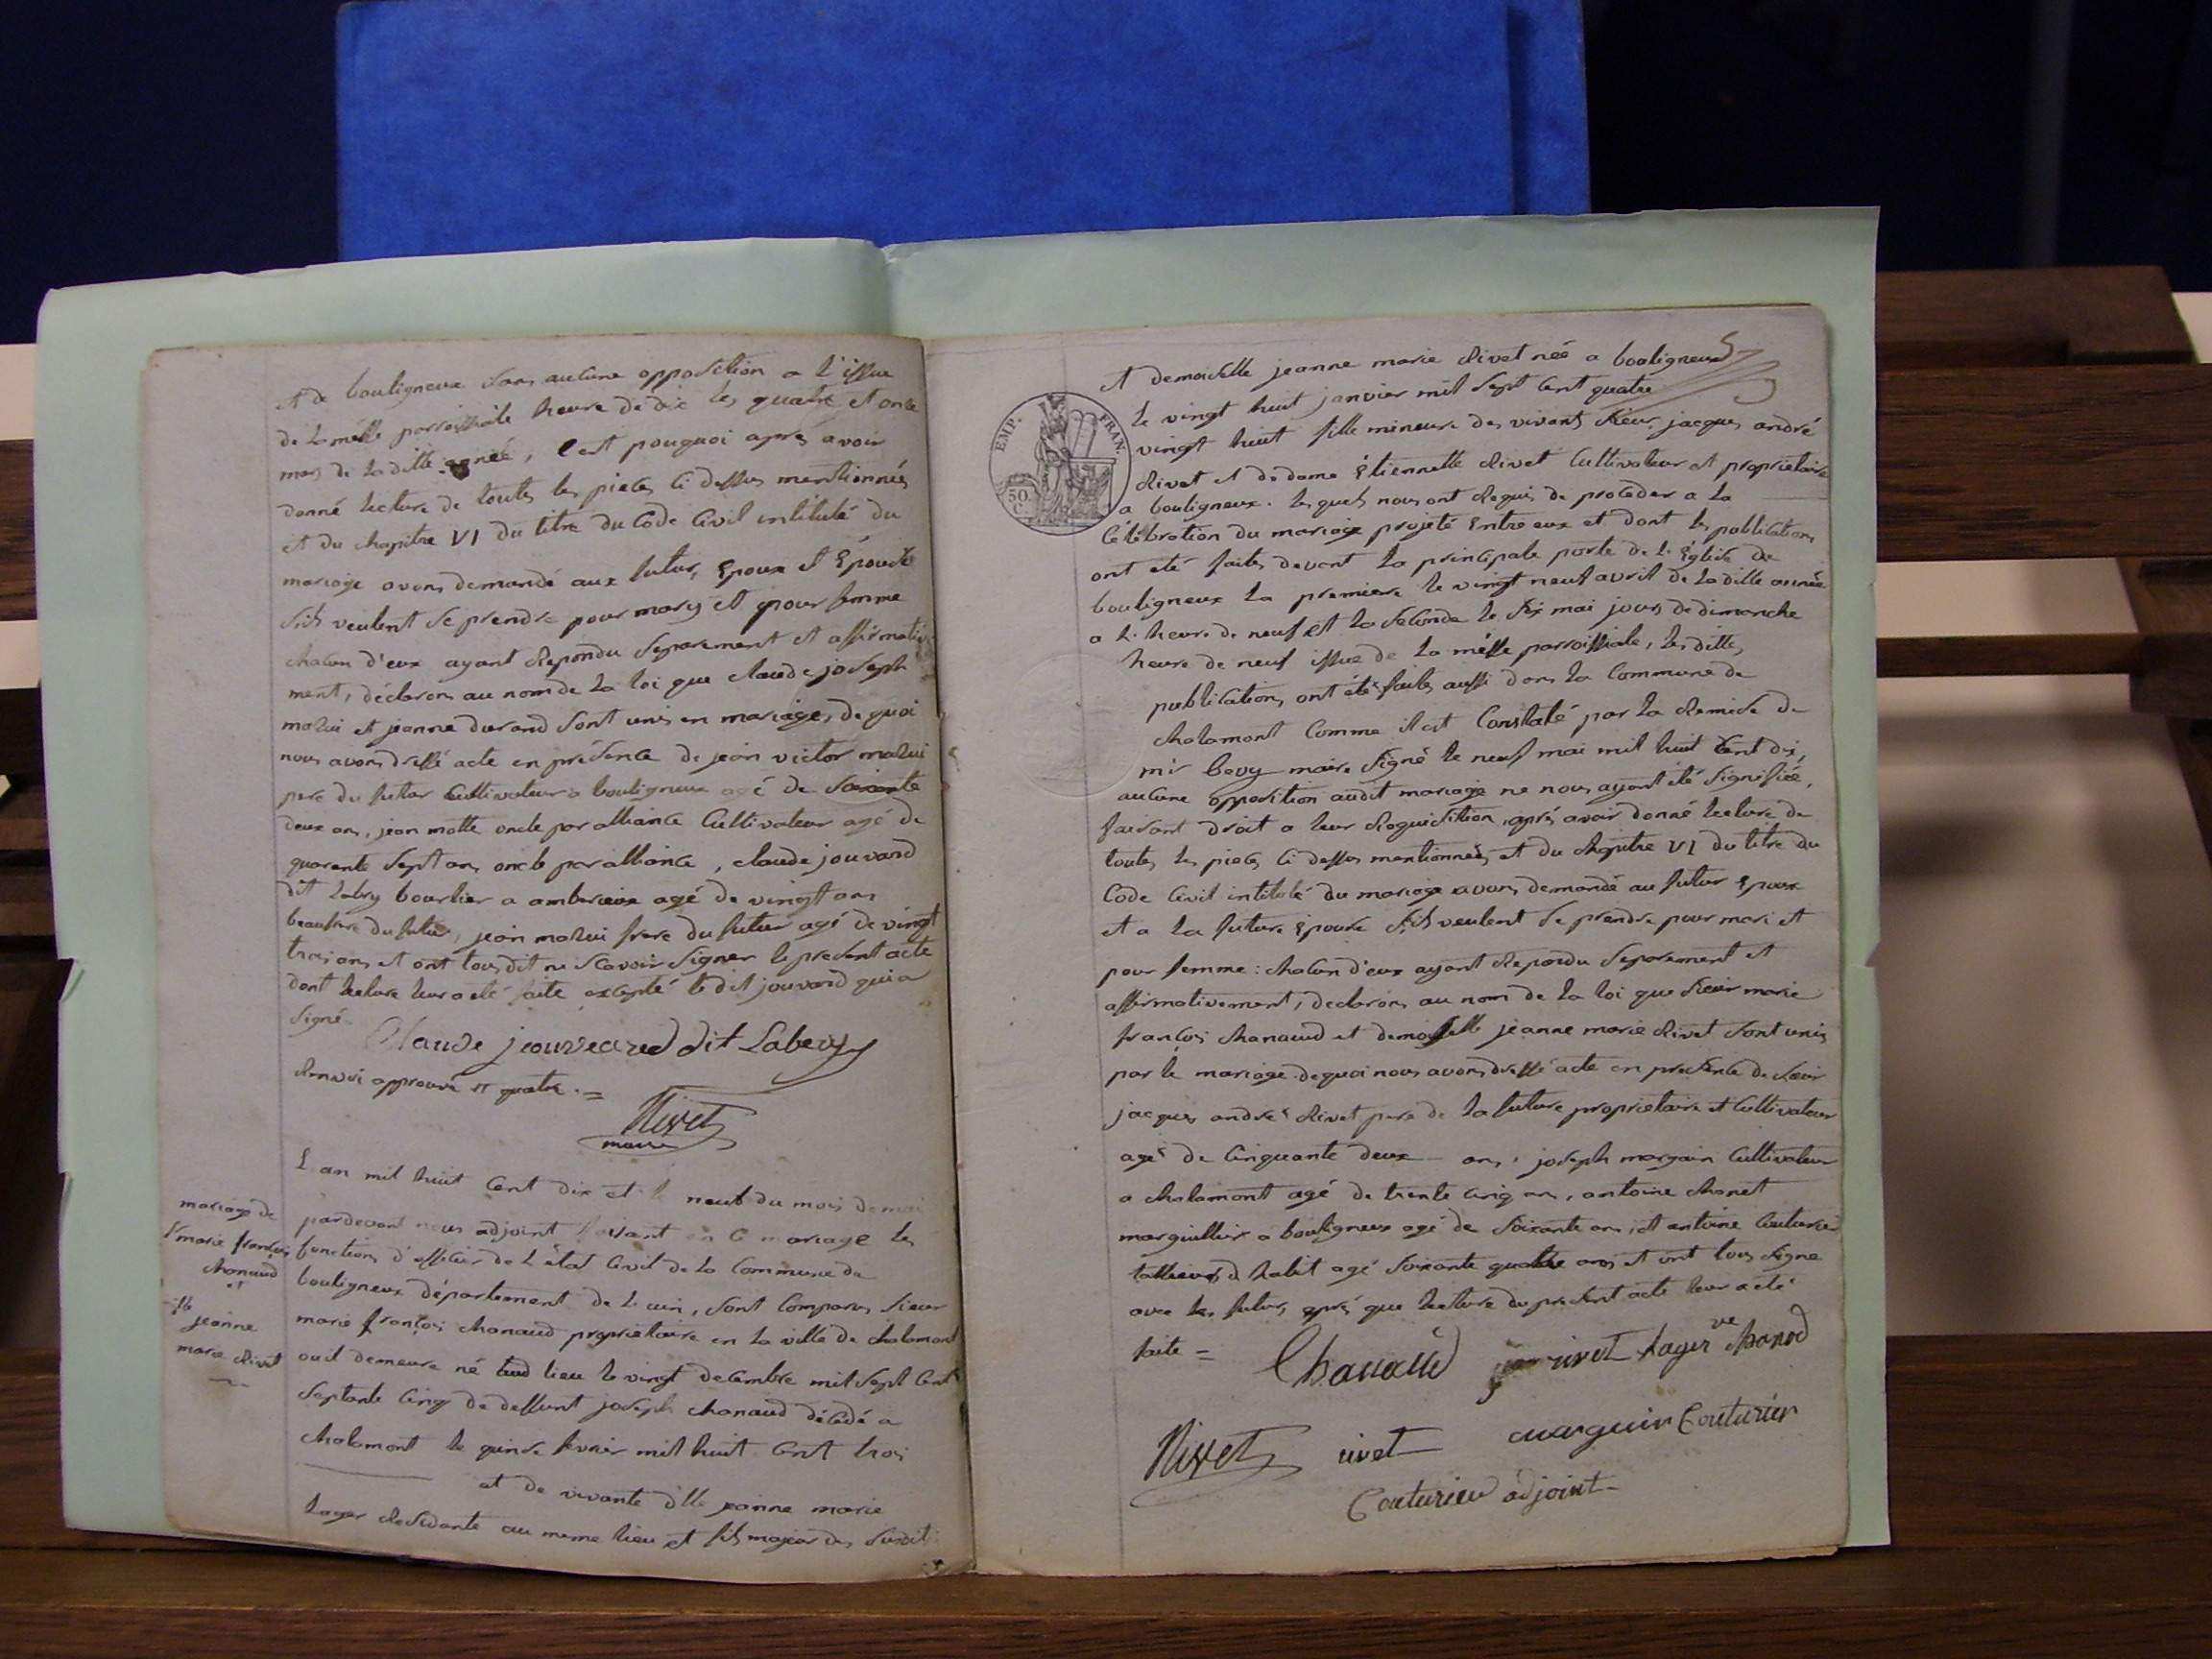 et de bouligneux sans aucune opposition a l'issue
de la mésse parroissiale heure de dix les quatre et onze
mars de la ditte année, c'est pouquoi aprés avoir
donné lecture de toutes les pieces ci dessus mentionnées
et du chapitre VI du titre du Code Civil intitulé du
mariage avons demandé aux futurs Epoux et Epouse
s'ils veulent se prendre pour mary et pour femme
chacun d'eux ayant repondu separement et affirmative
ment, déclarons au nom de la loi que claude joseph
et jeanne durand sont unis en mariage, de quoi
nous avons dressé acte en présence de jean victor
pere du futur Cultivateur a bouligneux agé de soixante
deux ans, jean motte oncle par alliance Cultivateur agé de
quarante sept ans oncle par alliance, claude jouvard
dit labry bourlier a amberieux agé de vingt ans
beaufrere du futur, jean frere du futur agé de vingt
trois ans et ont tous dit ne scavoir signer le present acte
dont lecture leur a eté faite excepté le dit jouvard qui a
signé
Claude jouveared dit Labery
renvoi approuvé et quatre. =
Rivet
maire
mariage de
s.r marie françois
chanaud
et
jeanne
marie rivet
L'an mil huit cent dix et le neuf du mois de mai
pardevant nous adjoint faisant en ce mariage les
fonctions d'officier de l'état Civil de la Commune de
bouligneux département de l'ain, sont comparus sieur
marie françois chanaud propriétaire en la ville de chalamont
ou il demeure né aud lieu le vingt decembre mil sept cent
septante cinq de deffunt joseph chanaud décédé a
chalamont le quinze fevrier mil huit cent trois
et de vivante d.lle jeanne marie
Lager residante au meme lieu et fils majeur des susdit
5
et demoiselle jeanne marie rivet née a bouligneux
le vingt huit janvier mil sept cent quatre
vingt huit fille mineure des vivants sieur jacques andré
rivet et de dame Etiennette rivet Cultivateur et propriétaire
a bouligneux. lesquels nous ont requis de proceder a la
Célébration du mariage projeté Entre eux et dont les publications
ont eté faites devant la principale porte de l'Eglise de
bouligneux la premiere le vingt neuf avril de la ditte année
a l'heure de neuf et la seconde le six mai jours de dimanche
heure de neuf issue de la mésse parroissiale, les dittes
publications ont été faites aussi dans la Commune de
chalamont Comme il est Constaté par la remise de
mr bevy maire signé le neuf mai mil huit cent dix,
aucune opposition audit mariage ne nous ayant été signifiée,
faisant droit a leur requisition, aprés avoir donné lecture de
toutes les pieces ci dessus mentionnées et du chapitre VI du titre du
Code Civil intitulé du mariage avons demandé au futur Epoux
et a la future Epouse s'ils veulent se prendre pour mari et
pour femme: chacun d'eux ayant repondu separement et
affirmativement, declarons au nom de la loi que sieur marie
françois chanaud et demoiselle jeanne marie rivet sont unis
par le mariage. de quoi nous avons dressé acte en presence de sieur
jacques andré rivet pere de la future propriétaire et Cultivateur
agé de cinquante deux ans, joseph margain Cultivateur
a chalamont agé de trente cinq ans, antoine chanet
marguillier a bouligneux agé de soixante ans, et antoine Couturier
tallieur d'habit agé soixante quatre ans et ont tous signe
avec les futurs, aprés que lecture du present acte leur a eté
faite =
Chanaud rivet Lager ve chanod
Rivet rivet marguin Couturier
Couturier adjoint
EMP. FRAN.
50
C.